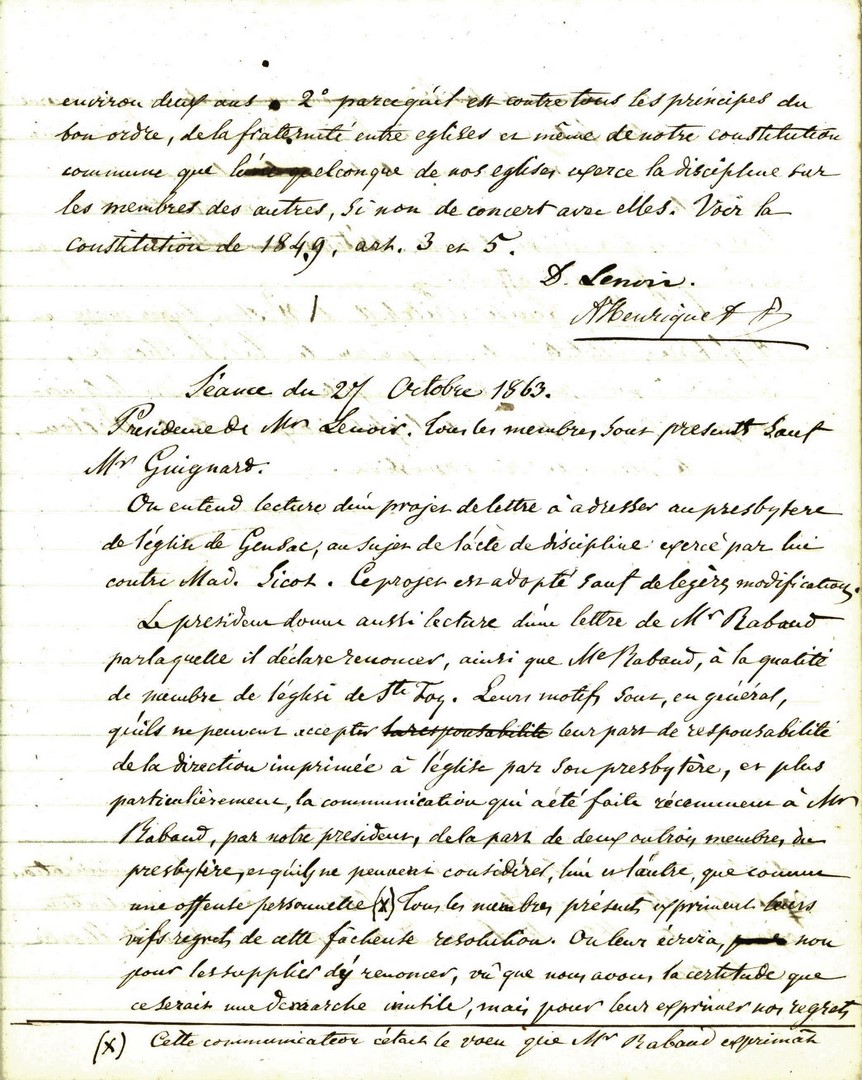 environ deux ans. 2° parcequ'il est contre tous les principes du
bon ordre, de la fraternité entre eglises et même de notre constitution
commune que quelconque de nos eglises exerce la discipline sur
les membres des autres, si non de concert avec elles. Voir la
constitution de 1849, art. 3 et 5.
D. Lenoir.
AHenriquet
Séance du 27 Octobre 1863.
Presidence de Mr Lenoir. Tous les membres sont presents sauf
Mr Guignard.
On entend lecture d'un projet de lettre à adresser au presbytere
de l'église de Gensac, au sujet de l'acte de discipline exercé par lui
contre Mad. Sicot. Ce projet est adopté sauf de legères modifications.
Le president donne aussi lecture d'une lettre de Mr Rabaud
par laquelle il déclare renoncer, ainsi que Me Rabaud, à la qualité
de membre de l'église de Ste Foy. Leurs motifs sont, en général,
qu'ils ne peuvent accepter la responsabilité leur part de responsabilité
de la direction imprimée à l'église par son presbytère, et plus
particulièrement, la communication qui a été faite récemment à Mr
Rabaud, par notre president, de la part de deux ou trois membres du
presbytère, et qu'ils ne peuvent considérer, l'un et l'autre, que comme
une offense personnelle (x) Tous les membres présents expriment leurs
vifs regrets de cette fâcheuse resolution. On leur écrira, non
pour les supplier d'y renoncer, vû que nous avons la certitude que
ce serait une démarche inutile, mais pour leur exprimer nos regrets
(x) Cette communication c'était le voeu que Mr Rabaud exprimât